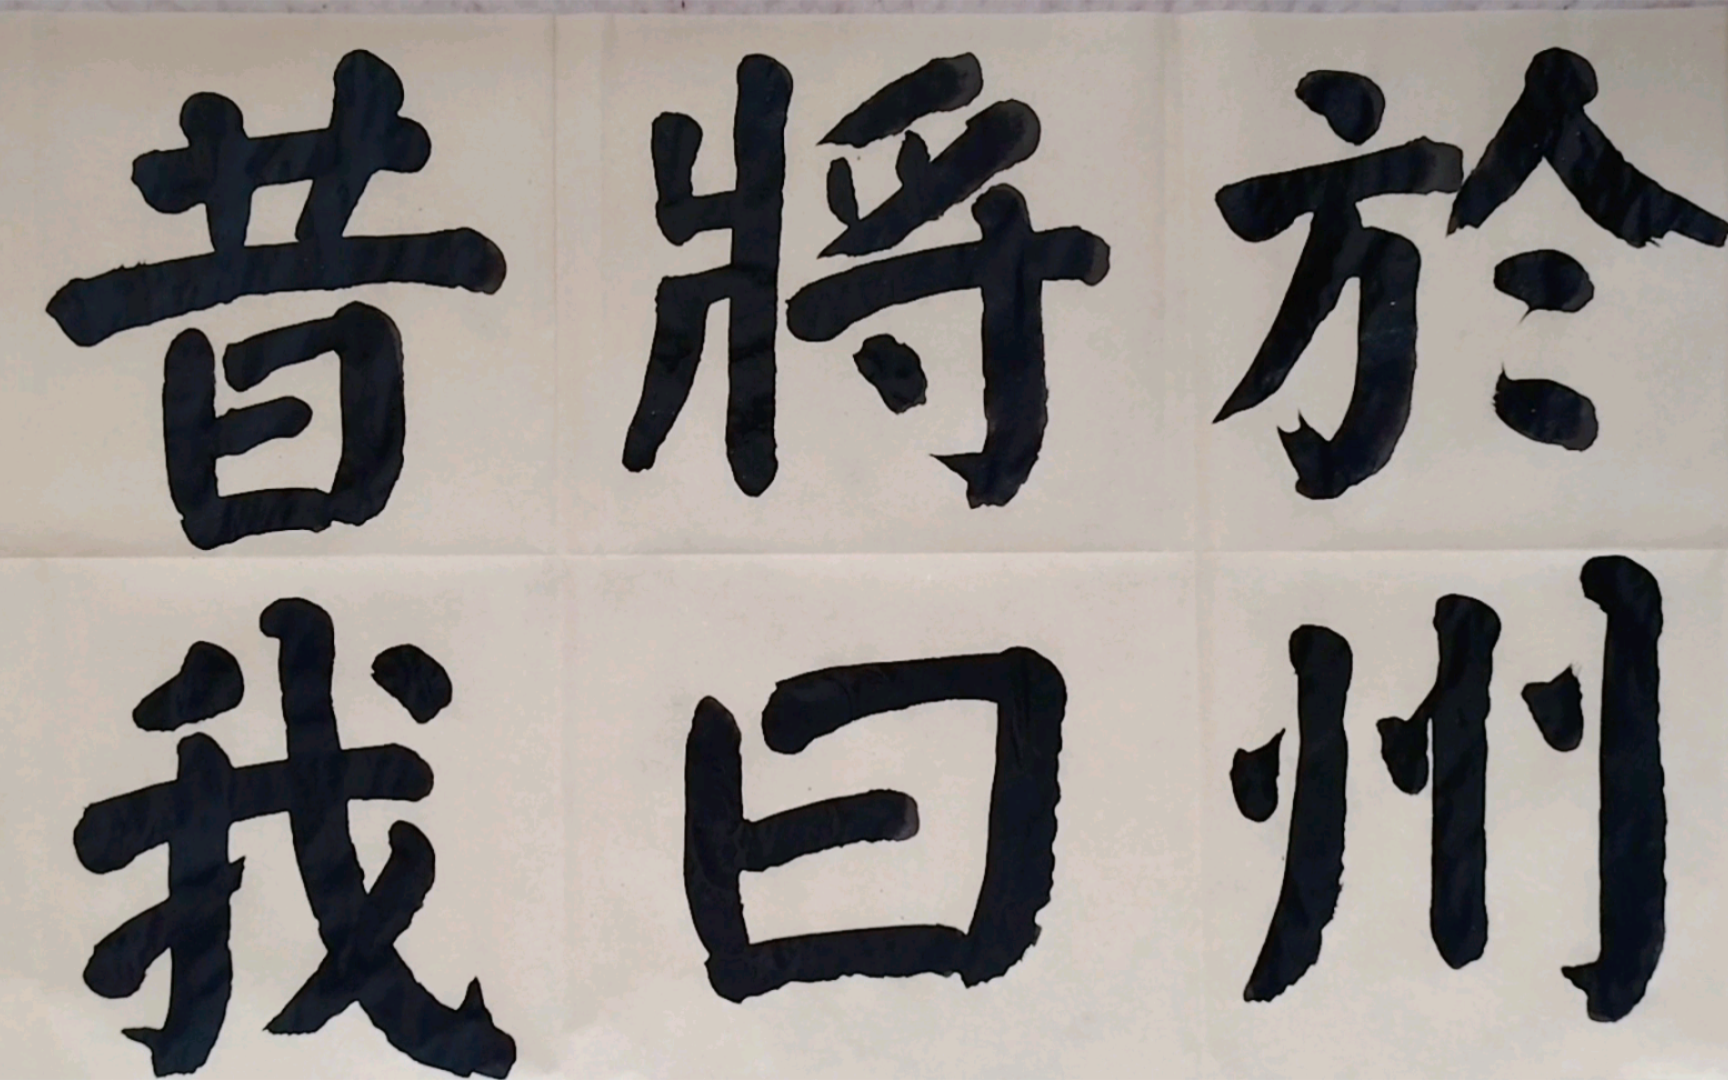 於州
將曰
昔我